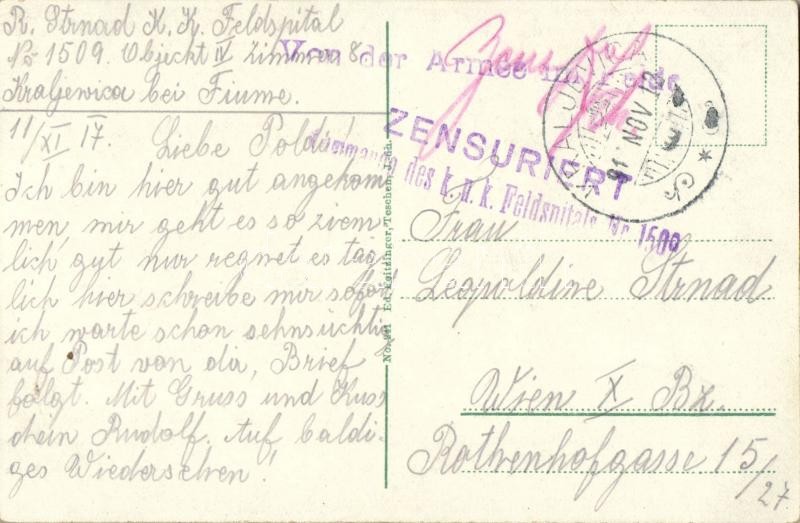 R. Strnad K. K. Feldspital
No 1509. Objeckt IV Zimmer 8
Kraljewica bei Fiume.
11/XI 17. Liebe Poldie!
Ich bin hier gut angekom
men, mir geht es so ziem
lich gut nur regnet es täg
lich hier schreibe mir sofort
ich warte schon sehnsüchtig
auf Post von dir, Brief
folgt. Mit Gruss und Kuss
dein Rudolf. Auf baldi-
ges Wiedersehen!
Von der Armee im Felde
ZENSURIERT
Kommando des k. u. k. Feldspitals Nr. 1509
NOV 12
Frau
Leopoldine Strnad
Wien X Bz.
Rothenhofgasse 15/27
Ed. Feitzinger, Teschen,